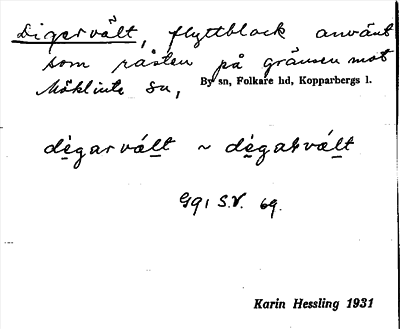 Digervält, flyttblock använt
som råsten på gränsen mot
Möklinta sn,
By sn, Folkare hd, Kopparbergs l.
dégarvált ~ dégakvált
Gql S.V. 69.
Karin Hessling 1931